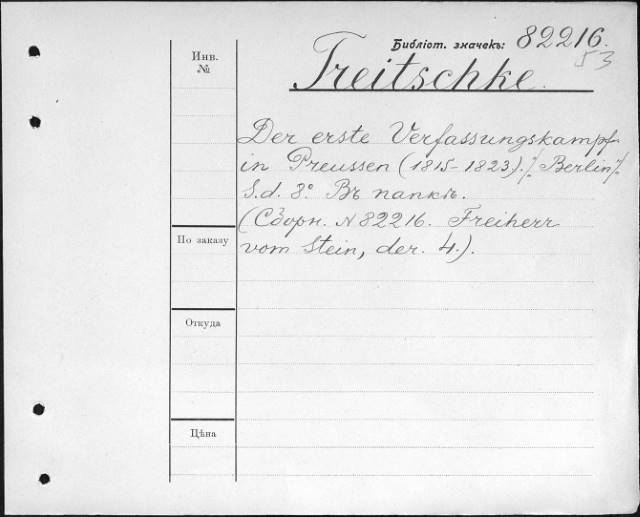 Библіот. значекъ: 82216.
53
Инв.
№
Treitschke.
Der erste Verfassungskampf
in Preussen (1815-1823). /: Berlin :/
S.d. 8°. Въ папкѣ.
(Сборн. № 82216. Freiherr
vom Stein, der. 4.).
По заказу
Откуда
Цѣна